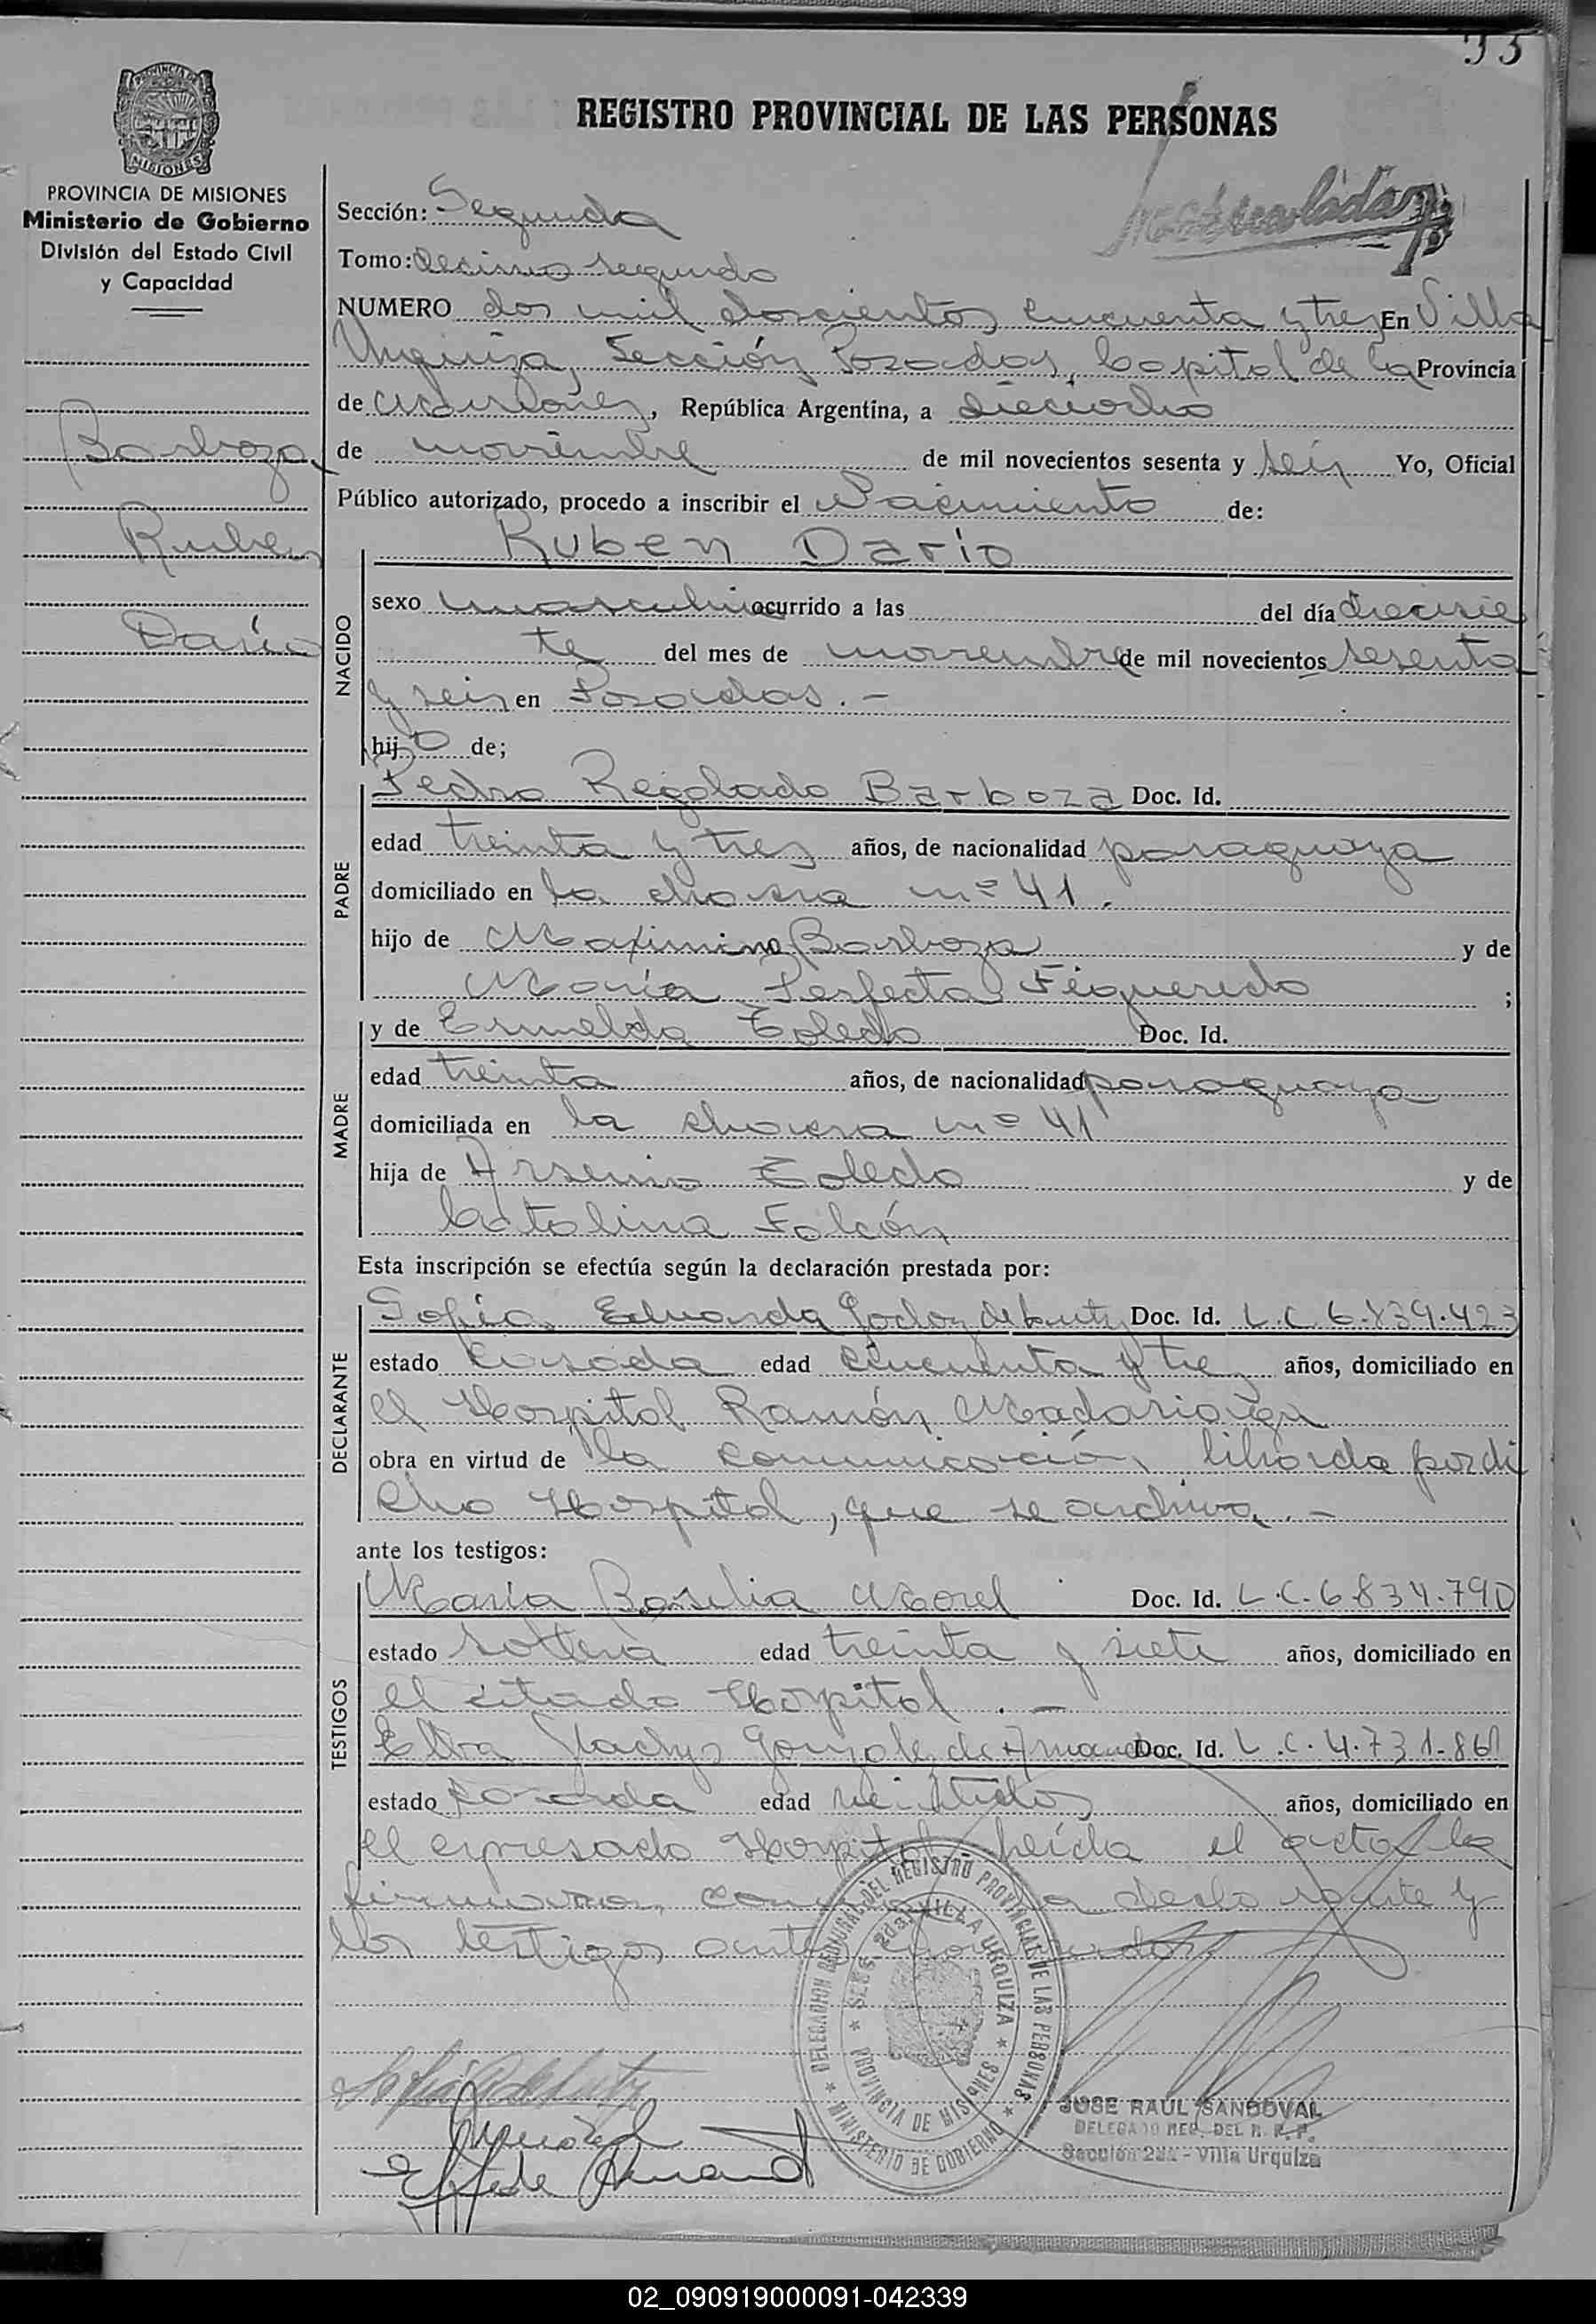 33
PROVINCIA DE
MISIONES
REGISTRO PROVINCIAL DE LAS PERSONAS
PROVINCIA DE MISIONES
Ministerio de Gobierno
División del Estado Civil
y Capacidad
Barboza
Ruben
Darío
Sección: Segunda
Tomo: decimo segundo
NUMERO dos mil doscientos cincuenta y tres En Villa
Urquiza, Sección Posadas, Capital de la Provincia
de Misiones, República Argentina, a dieciocho
de noviembre de mil novecientos sesenta y seis Yo, Oficial
Público autorizado, procedo a inscribir el Nacimiento de:
NACIDO
Ruben Dario
sexo masculino ocurrido a las del día diecisie
te del mes de noviembre de mil novecientos sesenta
y seis en Posadas. -
hijo de;
PADRE
Pedro Regalado Barboza Doc. Id.
edad treinta y tres años, de nacionalidad paraguaya
domiciliado en la chacra nº 41.
hijo de Maximino Barboza y de
María Perfecta Figueredo ;
MADRE
y de Ermelda Toledo Doc. Id.
edad treinta años, de nacionalidad paraguaya
domiciliada en la chacra nº 41
hija de Arsenio Toledo y de
Catolina Falcón
Esta inscripción se efectúa según la declaración prestada por:
DECLARANTE
Sofia Eduarda Godoy de Doc. Id. L.C. 6.839.423
estado casada edad cincuenta y tres años, domiciliado en
el Hospital Ramón Madariaga
obra en virtud de la comunicación librada por di
cho Hospital, que se archiva. -
ante los testigos:
TESTIGOS
María Basilia Morel Doc. Id. L.C. 6.834.790
estado soltera edad treinta y siete años, domiciliado en
el citado Hospital. -
Elba Gladys Gonzalez de Doc. Id. L.C. 4.731.861
estado casada edad veintidos años, domiciliado en
el expresado Hospital leída el acta la
firmaron declarante y
los testigos antes
DELEGACION REGIONAL DEL REGISTRO PROVINCIAL DE LAS PERSONAS
MINISTERIO DE GOBIERNO
SECC. 2da. VILLA URQUIZA
PROVINCIA DE MISIONES
JOSE RAUL SANDOVAL
DELEGADO REG. DEL R. P. P.
Sección 2da - Villa Urquiza
02_090919000091-042339